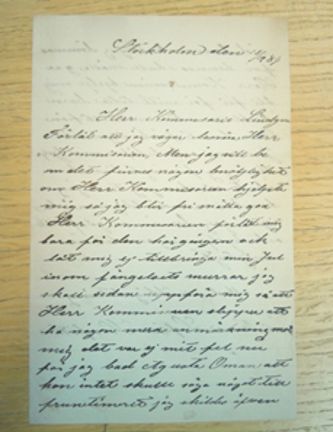 Stockholm den
Herr Kommisarie Lindgren
Förlåt att jag vågar besvära Herr
Kommisarien, Men jag vill be
om det finnes någon möjlighet
om Herr Kommisarien hjelpte
mig så jag blir fri måtte goa
Herr Kommisarien förlåt mig
bara för den här gången och
låt mig ej tillbringa min Jul
inom fängelsets murrar jag
skall sedan uppföra mig så att
Herr Kommisarien slipper att
ha någon mera anmärkning mot
mig det var ej mit fel nu
för jag bad Agusta Öman att
hon intet skulle säga något till
fruntimeret jag skilde